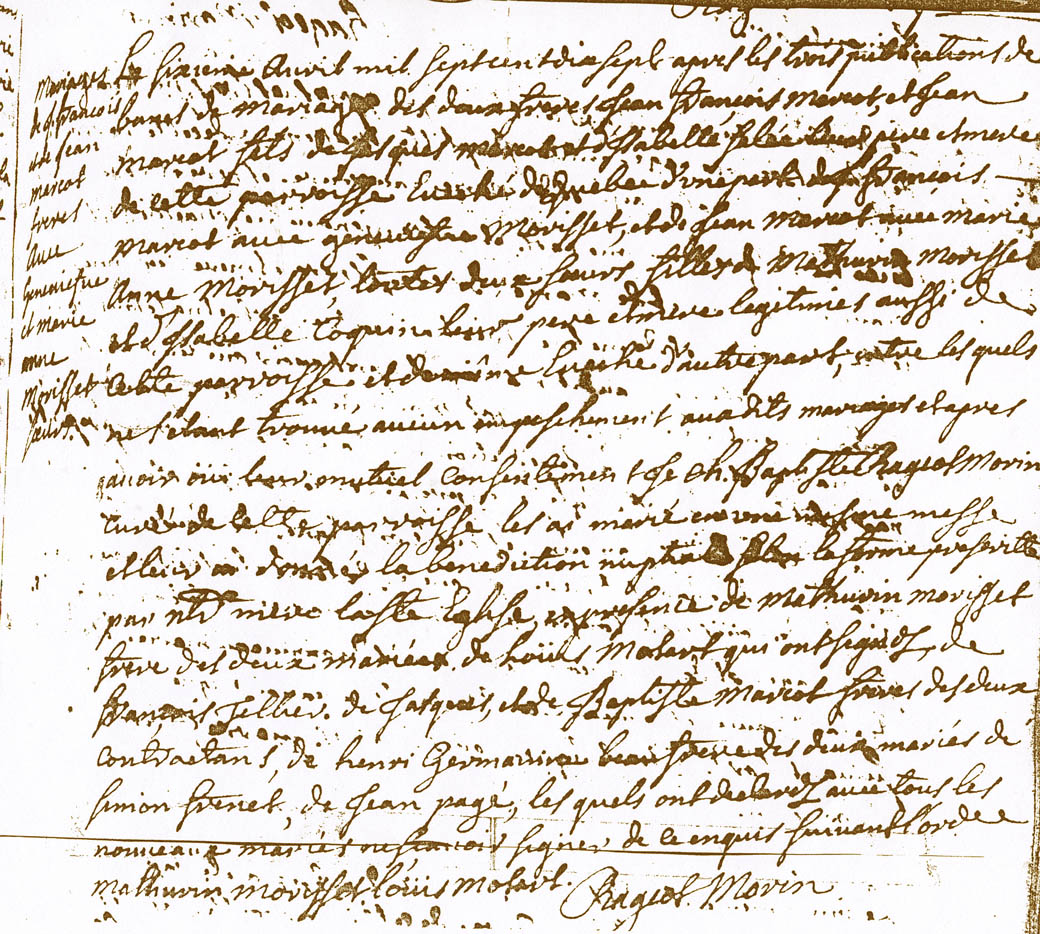 Mariages
de J. François
et de Jean
marcot
freres
Avec
Geneviefve
et marie
anne
Morisset
sœurs.
Le sixieme Avril mil sept cent dix sept apres les trois publications de
bancs de mariage des deux freres Jean François Marcot, et Jean
Marcot fils de Jacques marcot et d'Isabelle Salée leurs pere et mere
de cette parroisse Evêché de Quebec d'une part de J. François
Marcot avec géneviefve Morisset, et de Jean Marcot avec Marie
Anne Morisset, toutes deux sœurs filles de Mathurin Morisset
et d'Isabelle Coquin leurs pere et mere legitimes aussi de
cette parroisse et de même Evêché d'autre part, entre les quels
ne s'etant trouvé aucun empeschement auxdits mariages et apres
avoir oui leur mutuel consentement Je Ch. Baptiste Rageot Morin
curé de cette parroisse les ai marié en une mesme messe
et leur ai donnée la benediction nuptiale selon la forme prescritte
par ntre mere la Ste Eglise, en presence de Mathurin morisset
frere des deux mariées de Louis Motart qui ont signés, de
François Jellier, de Jacques, et de Baptiste Marcot freres des deux
contractans, de henri Germain beau frere des deux mariés de
simon frenet, de Jean pagé, les quels ont declarés avec tous les
nouveaux mariés ne scavoir signer de ce enquis suivant l'ordce
Mathurin morisset louis motart.
Rageot Morin